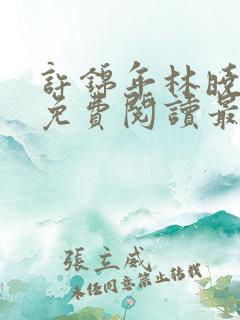 許錦年林曉
免費閱讀最
張立威
未經同意禁止轉載